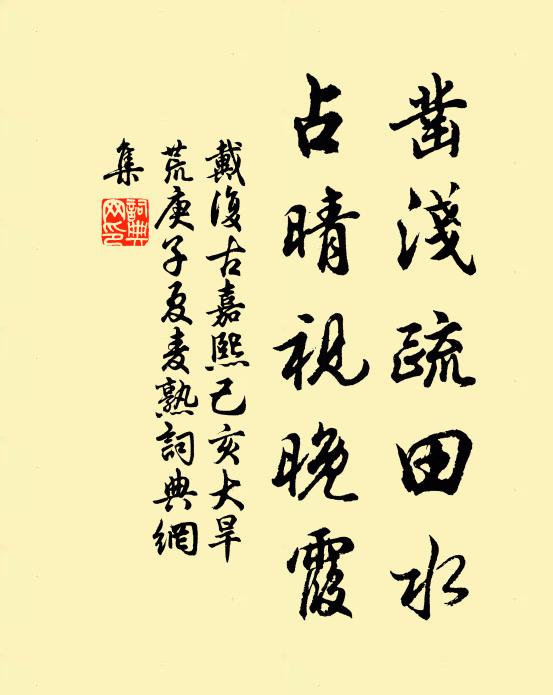 凿淺疏田水
占晴視晚霞
戴復古嘉熙己亥大旱
荒庚子夏麦熟詞典網
集
詞典网印